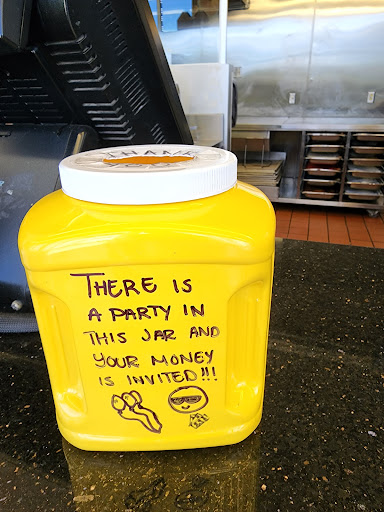 THERE IS
A PARTY IN
THIS JAR AND
YOUR MONEY
IS INVITED!!!